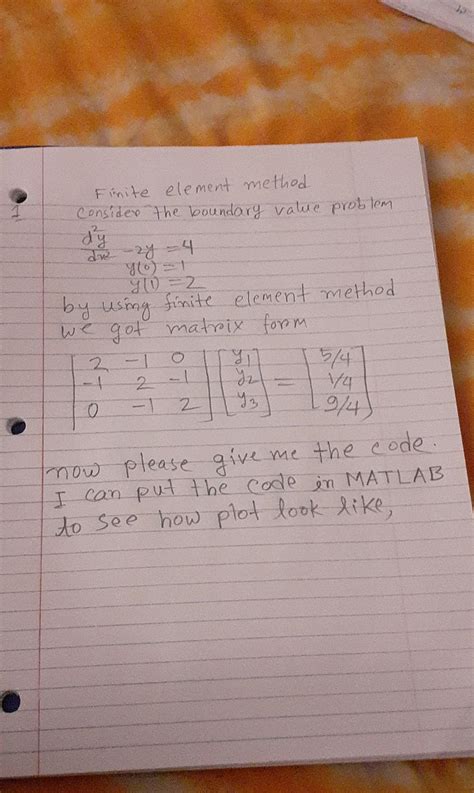 Finite element method
1 Consider the boundary value problem
d²y/dx² - 2y = 4
y(0) = 1
y(1) = 2
by using finite element method
we got matrix form
[2 -1 0] [y1] = [5/4]
[-1 2 -1] [y2] [1/4]
[0 -1 2] [y3] [9/4]
now please give me the code.
I can put the code in MATLAB
to see how plot look like,